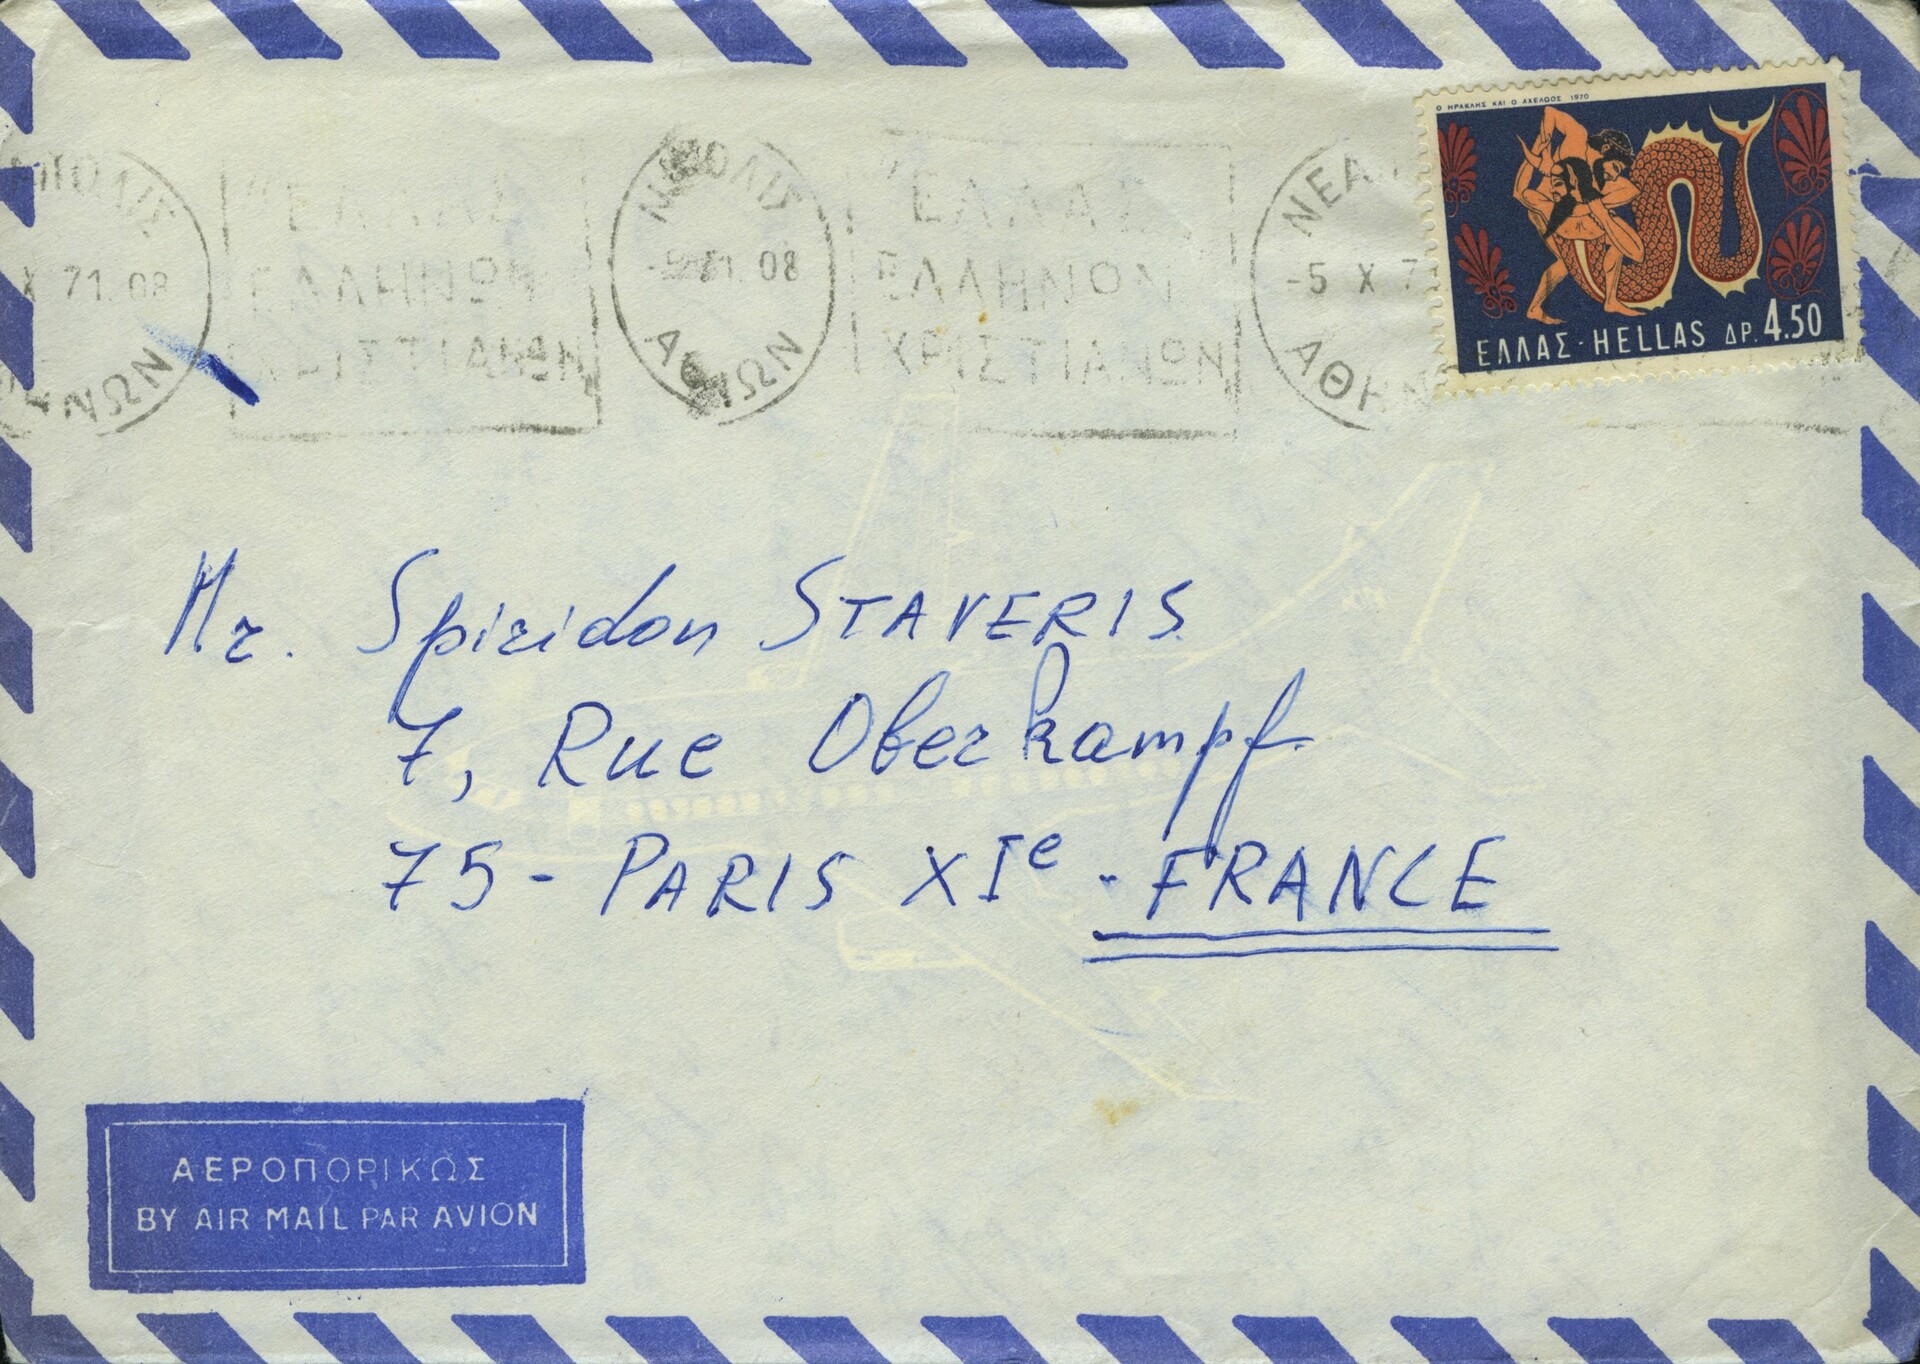 Ο ΗΡΑΚΛΗΣ ΚΑΙ Ο ΑΧΕΛΩΟΣ 1970
ΕΛΛΑΣ · HELLAS ΔΡ. 4.50
ΠΟΛΙΣ
X 71. 08
ΗΝΩΝ
"ΕΛΛΑΣ
ΕΛΛΗΝΩΝ
ΧΡΙΣΤΙΑΝΩΝ
ΠΟΛΙΣ
71. 08
ΑΘΗΝΩΝ
"ΕΛΛΑΣ
ΕΛΛΗΝΩΝ
ΧΡΙΣΤΙΑΝΩΝ
ΝΕΑ
-5 X 7
ΑΘΗΝ
Mr. Spiridon STAVERIS
7, Rue Oberkampf
75 - PARIS XIe - FRANCE
ΑΕΡΟΠΟΡΙΚΩΣ
BY AIR MAIL PAR AVION